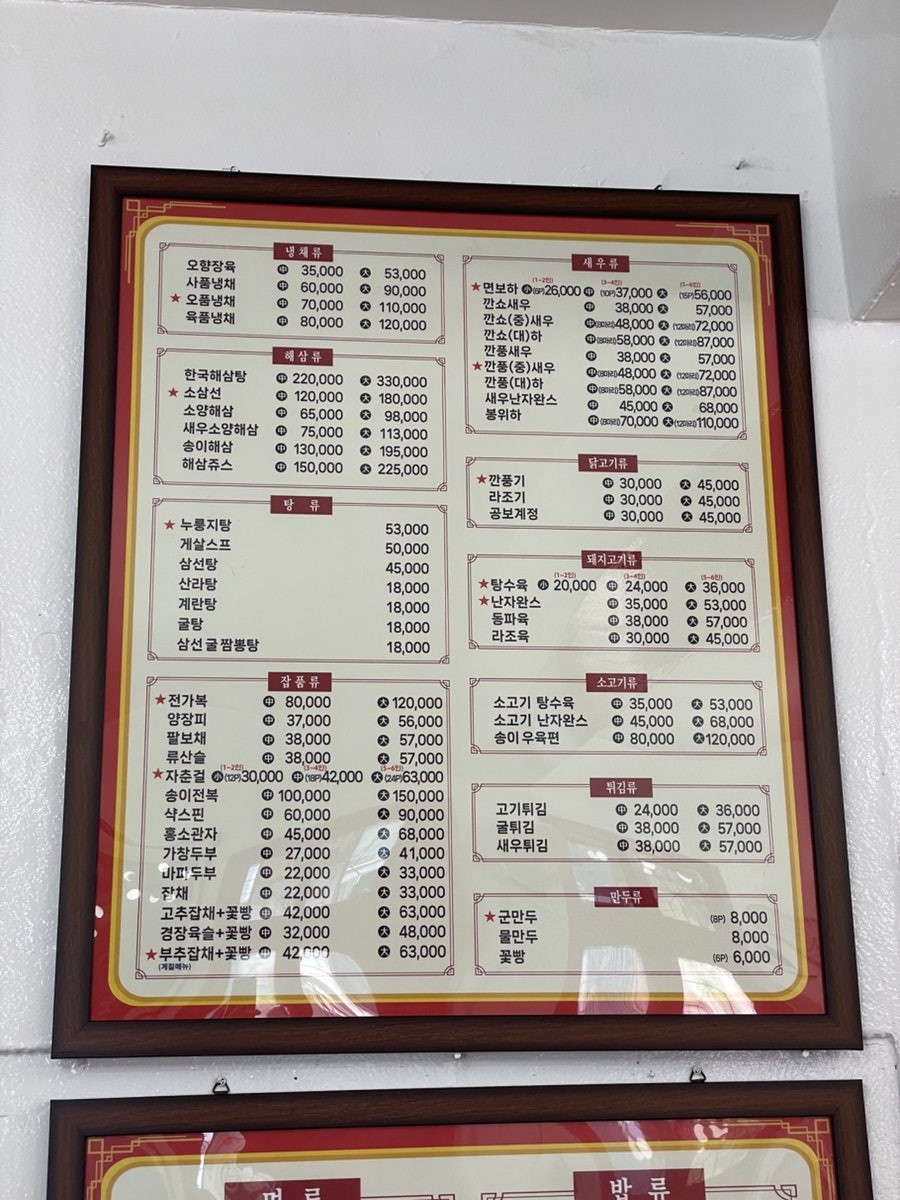 냉채류
오향장육 中 35,000 大 53,000
사품냉채 中 60,000 大 90,000
★ 오품냉채 中 70,000 大 110,000
육품냉채 中 80,000 大 120,000
해삼류
한국해삼탕 中 220,000 大 330,000
★ 소삼선 中 120,000 大 180,000
소양해삼 中 65,000 大 98,000
새우소양해삼 中 75,000 大 113,000
송이해삼 中 130,000 大 195,000
해삼쥬스 中 150,000 大 225,000
탕 류
★ 누룽지탕 53,000
게살스프 50,000
삼선탕 45,000
산라탕 18,000
계란탕 18,000
굴탕 18,000
삼선굴짬뽕탕 18,000
잡품류
★전가복 中 80,000 大 120,000
양장피 中 37,000 大 56,000
팔보채 中 38,000 大 57,000
류산슬 中 38,000 大 57,000
(1~2인) (3~4인) (5~6인)
★자춘걸 小(12P)30,000 中(18P)42,000 大(24P)63,000
송이전복 中 100,000 大 150,000
샥스핀 中 60,000 大 90,000
홍소관자 中 45,000 大 68,000
가창두부 中 27,000 大 41,000
마파두부 中 22,000 大 33,000
잡채 中 22,000 大 33,000
고추잡채+꽃빵 中 42,000 大 63,000
경장육슬+꽃빵 中 32,000 大 48,000
★부추잡채+꽃빵 中 42,000 大 63,000
(계절메뉴)
새우류
(1~2인) (3~4인) (5~6인)
★면보하 小(6P)26,000 中(10P)37,000 大(15P)56,000
깐쇼새우 中 38,000 大 57,000
깐쇼(중)새우 中(8마리)48,000 大(12마리)72,000
깐쇼(대)하 中(8마리)58,000 大(12마리)87,000
깐풍새우 中 38,000 大 57,000
★깐풍(중)새우 中(8마리)48,000 大(12마리)72,000
깐풍(대)하 中(8마리)58,000 大(12마리)87,000
새우난자완스 中 45,000 大 68,000
봉위하 中(8마리)70,000 大(12마리)110,000
닭고기류
★깐풍기 中 30,000 大 45,000
라조기 中 30,000 大 45,000
공보계정 中 30,000 大 45,000
돼지고기류
(1~2인) (3~4인) (5~6인)
★탕수육 小 20,000 中 24,000 大 36,000
★난자완스 中 35,000 大 53,000
동파육 中 38,000 大 57,000
라조육 中 30,000 大 45,000
소고기류
소고기 탕수육 中 35,000 大 53,000
소고기 난자완스 中 45,000 大 68,000
송이우육편 中 80,000 大120,000
튀김류
고기튀김 中 24,000 大 36,000
굴튀김 中 38,000 大 57,000
새우튀김 中 38,000 大 57,000
만두류
★군만두 (8P) 8,000
물만두 8,000
꽃빵 (6P) 6,000
면류
밥류